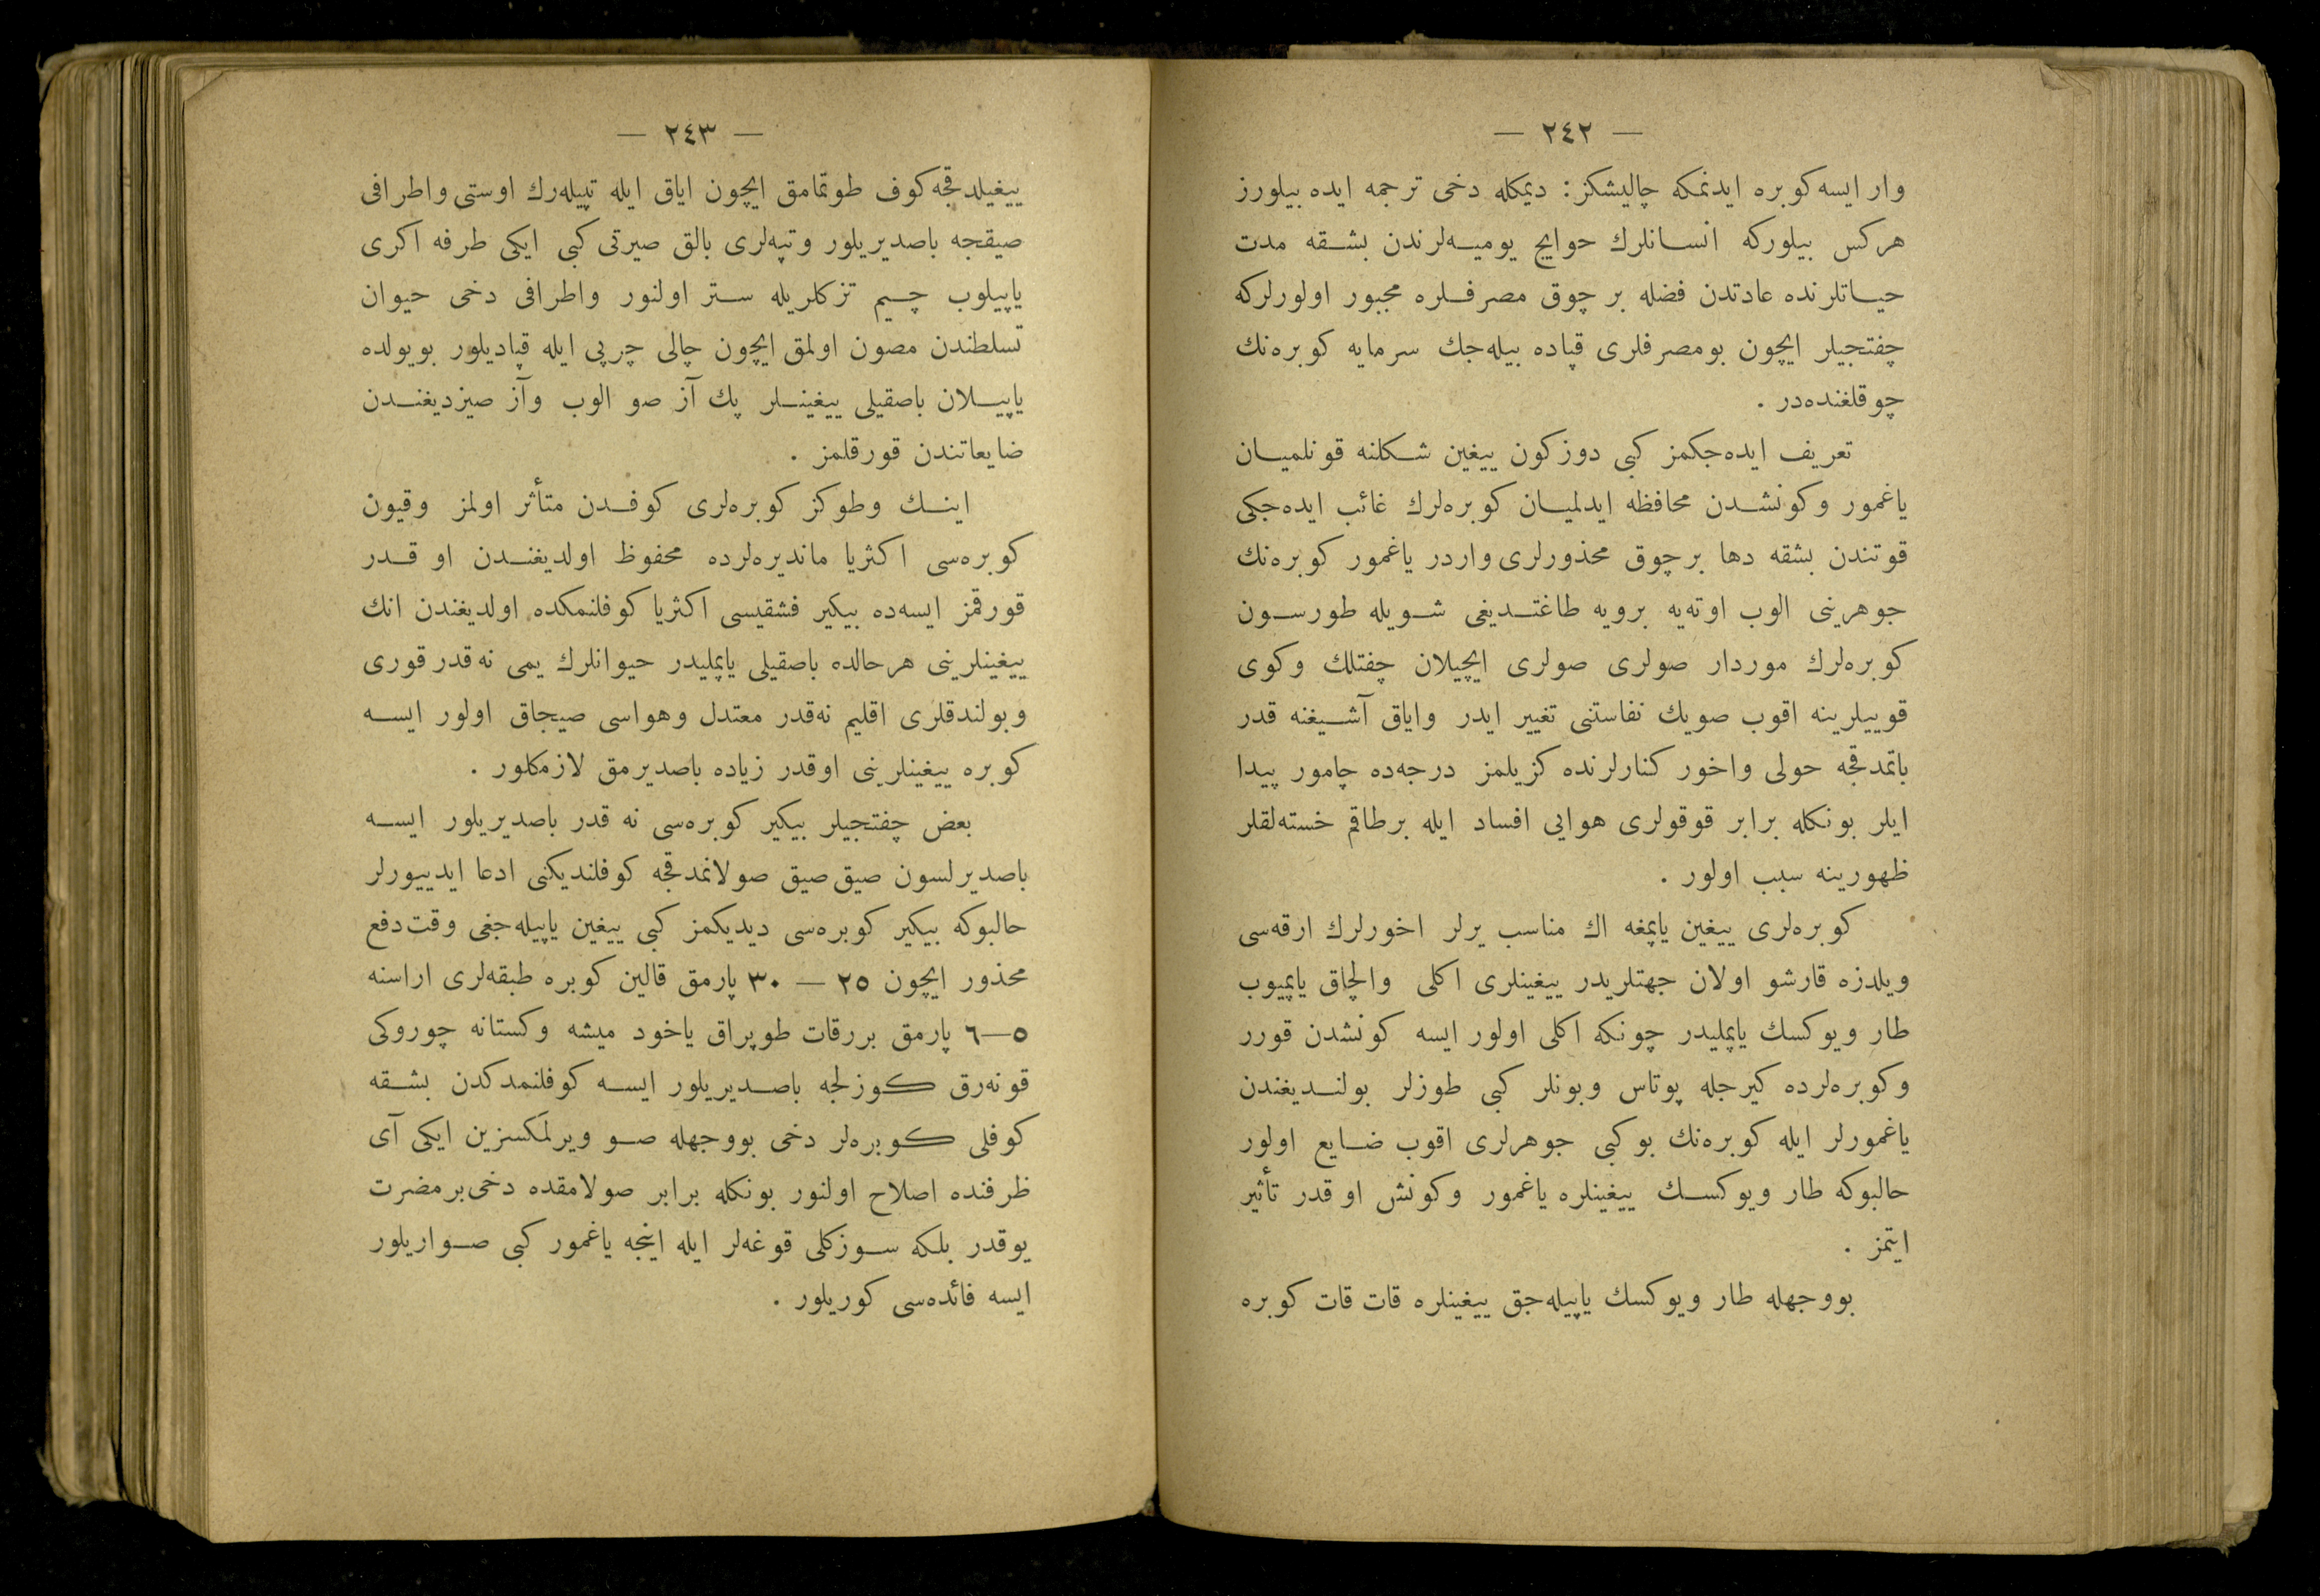 — ٢٤٢ —
وار ایسه كوبره ایدنمكه چالیشكز: دیمكله دخی ترجمه ایده بیلورز
هركس بیلوركه انسانلرك حوایج یومیه‌لرندن بشقه مدت
حیاتلرنده عادتدن فضله بر چوق مصرفلره مجبور اولورلركه
چفتجیلر ایچون بومصرفلری قپاده بیله‌جك سرمایه كوبره‌نك
چوقلغنده‌در .
تعریف ایده‌جكمز كبی دوزكون ییغین شكلنه قونلمیان
یاغمور وكونشدن محافظه ایدلمیان كوبره‌لرك غائب ایده‌جكی
قوتندن بشقه دها برچوق محذورلری واردر یاغمور كوبره‌نك
جوهرینی الوب اوته‌یه برویه طاغتدیغی شویله طورسون
كوبره‌لرك موردار صولری صولری ایچیلان چفتلك وكوی
قوییلرینه اقوب صویك نفاستنی تغییر ایدر وایاق آشیغنه قدر
باتمدقجه حولی واخور كنارلرنده كزیلمز درجه‌ده چامور پیدا
ایلر بونكله برابر قوقولری هوایی افساد ایله برطاقم خسته‌لقلر
ظهورینه سبب اولور .
كوبره‌لری ییغین یاپمغه اك مناسب یرلر اخورلرك ارقه‌سی
ویلدزه قارشو اولان جهتلریدر ییغینلری اكلی والچاق یاپمیوب
طار ویوكسك یاپملیدر چونكه اكلی اولور ایسه كونشدن قورر
وكوبره‌لرده كیرجله پوتاس وبونلر كبی طوزلر بولندیغندن
یاغمورلر ایله كوبره‌نك بوكبی جوهرلری اقوب ضایع اولور
حالبوكه طار ویوكسك ییغینلره یاغمور وكونش اوقدر تأثیر
ایتمز .
بووجهله طار ویوكسك یاپیله‌جق ییغینلره قات قات كوبره
— ٢٤٣ —
ییغیلدقجه كوف طوتمامق ایچون ایاق ایله تپیله‌رك اوستی واطرافی
صیقجه باصدیریلور وتپه‌لری بالق صیرتی كبی ایكی طرفه اكری
یاپیلوب چیم تزكلریله ستر اولنور واطرافی دخی حیوان
تسلطندن مصون اولمق ایچون چالی چرپی ایله قپادیلور بویولده
یاپیلان باصقیلی ییغینلر پك آز صو الوب وآز صیزدیغندن
ضایعاتندن قورقلمز .
اینك وطوكز كوبره‌لری كوفدن متأثر اولمز وقیون
كوبره‌سی اكثریا ماندیره‌لرده محفوظ اولدیغندن او قدر
قورقمز ایسه‌ده بیكیر فشقیسی اكثریا كوفلنمكده اولدیغندن انك
ییغینلرینی هرحالده باصقیلی یاپملیدر حیوانلرك یمی نه‌قدر قوری
وبولندقلری اقلیم نه‌قدر معتدل وهواسی صیجاق اولور ایسه
كوبره ییغینلرینی اوقدر زیاده باصدیرمق لازمكلور .
بعض چفتجیلر بیكیر كوبره‌سی نه قدر باصدیریلور ایسه
باصدیرلسون صیق صیق صولانمدقجه كوفلندیكنی ادعا ایدییورلر
حالبوكه بیكیر كوبره‌سی دیدیكمز كبی ییغین یاپیله‌جغی وقت دفع
محذور ایچون ٢٥ — ٣٠ پارمق قالین كوبره طبقه‌لری اراسنه
٥—٦ پارمق بررقات طوپراق یاخود میشه وكستانه چوروكی
قونه‌رق كوزلجه باصدیریلور ایسه كوفلنمدكدن بشقه
كوفلی كوبره‌لر دخی بووجهله صو ویرلمكسزین ایكی آی
ظرفنده اصلاح اولنور بونكله برابر صولامقده دخی‌برمضرت
یوقدر بلكه سوزكلی قوغه‌لر ایله اینجه یاغمور كبی صواریلور
ایسه فائده‌سی كوریلور .